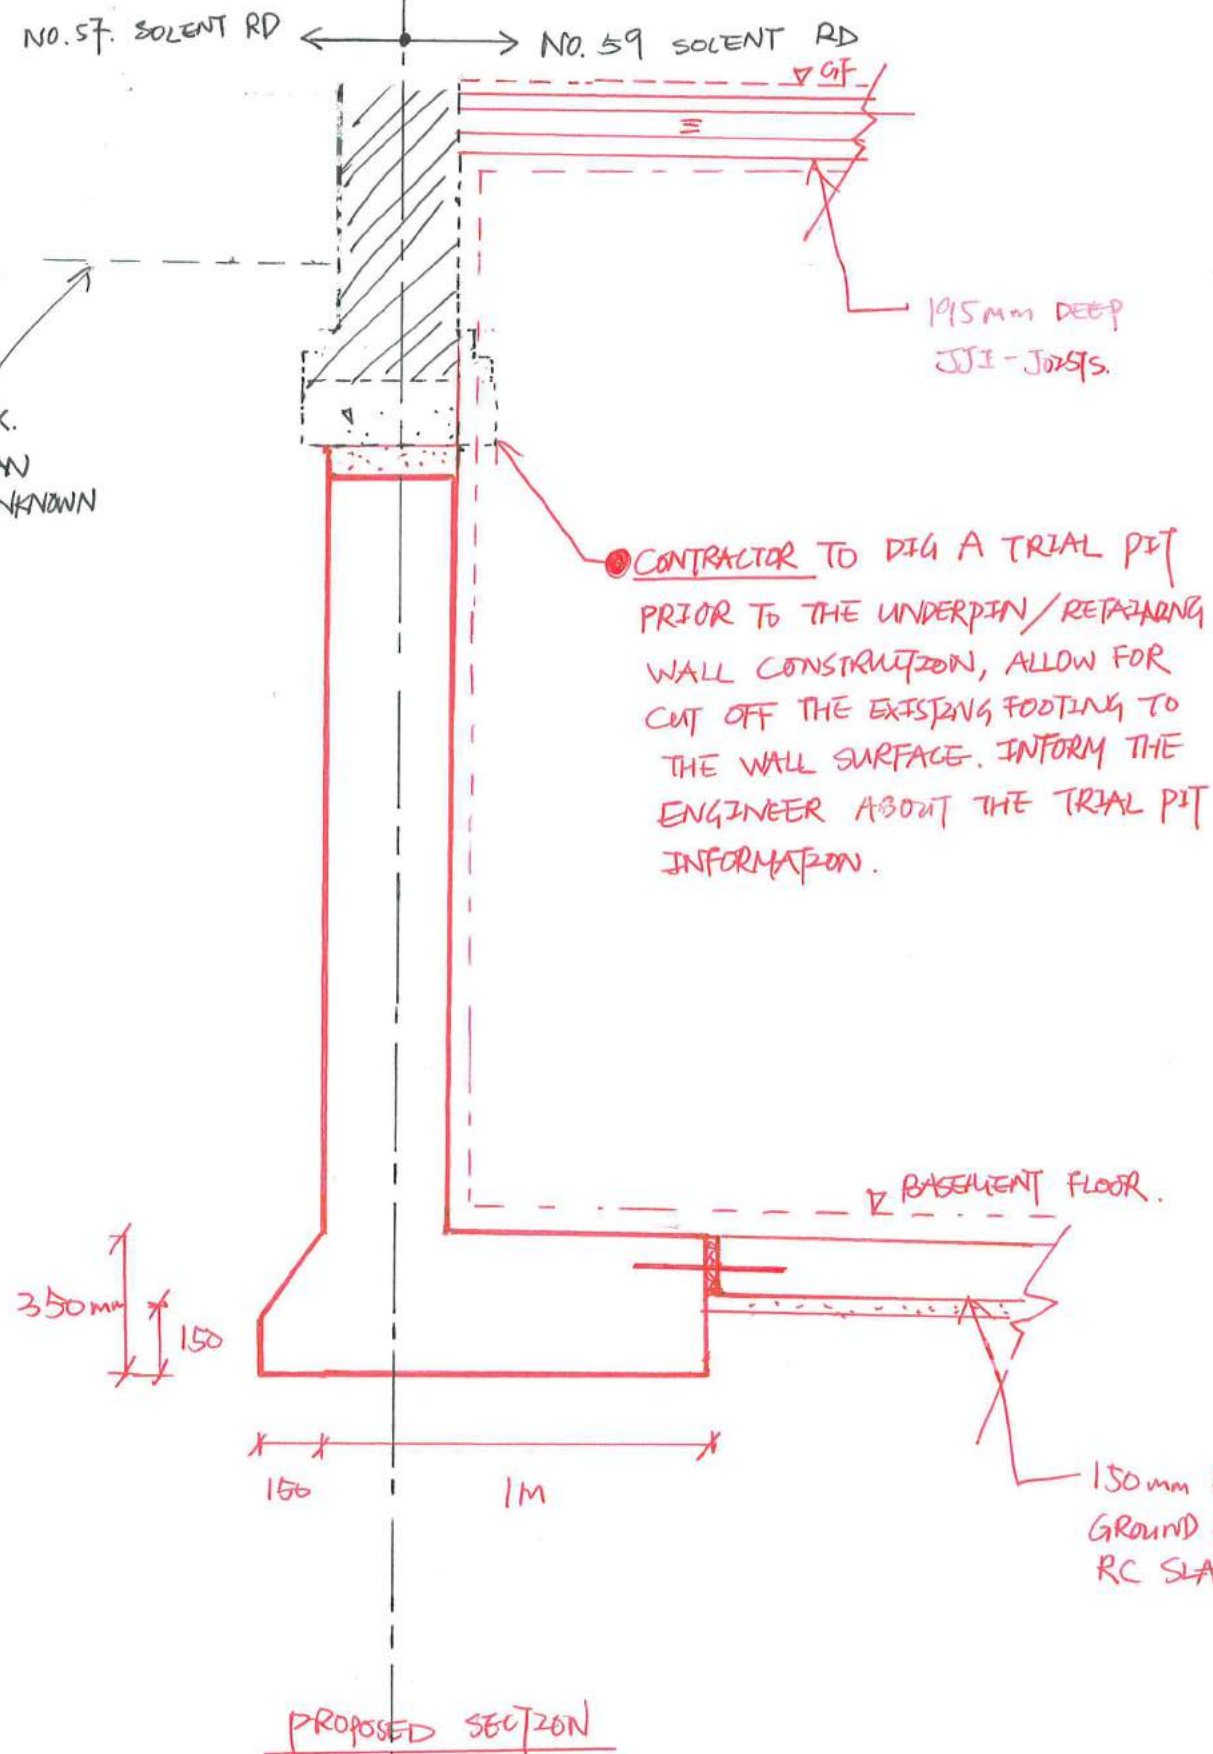 NO.57. SOLENT RD
NO. 59 SOLENT RD
GF
195mm DEEP
JJI-JOISTS.
UNKNOWN
CONTRACTOR TO DIG A TRIAL PIT
PRIOR TO THE UNDERPIN/RETAINING
WALL CONSTRUCTION, ALLOW FOR
CUT OFF THE EXISTING FOOTING TO
THE WALL SURFACE. INFORM THE
ENGINEER ABOUT THE TRIAL PIT
INFORMATION.
BASEMENT FLOOR.
350mm
150
150
1M
150mm
GROUND
RC SLA
PROPOSED SECTION